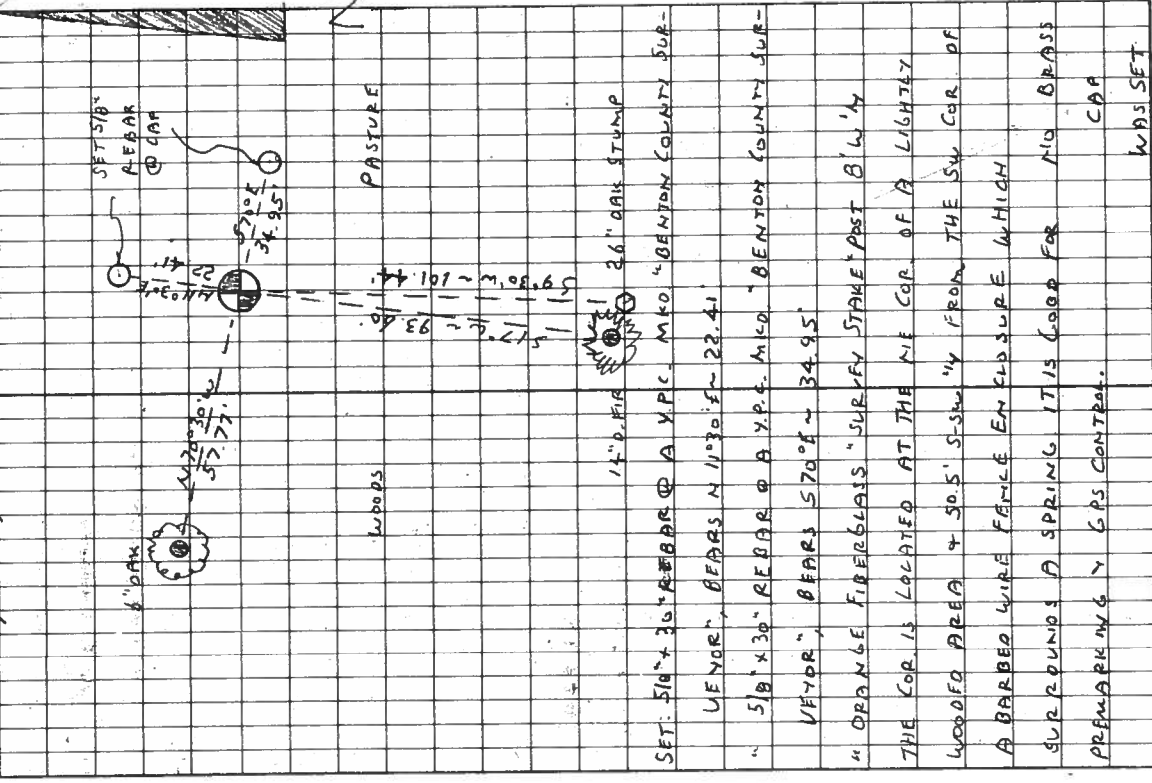 SET 5/8"
REBAR
@ CAP
6" OAK
N 70°30' W
57.77'
N 11°30' E
22.41'
S 70° E
34.95'
PASTURE
WOODS
S 17° E ~ 93.60'
S 9°30' W ~ 101.44'
14" D. FIR
26" OAK STUMP
SET: 5/8" x 30" REBAR @ A Y.P.C. MKD. "BENTON COUNTY SUR-
VEYOR", BEARS N 11°30' E ~ 22.41'
" 5/8" x 30" REBAR @ A Y.P.C. MKD "BENTON COUNTY SUR-
VEYOR", BEARS S 70° E ~ 34.95'
" ORANGE FIBERGLASS "SURVEY STAKE" POST 8' W'LY
THE COR. IS LOCATED AT THE NE COR. OF A LIGHTLY
WOODED AREA & 50.5' S-SW'LY FROM THE SW COR OF
A BARBED WIRE FENCE ENCLOSURE WHICH
SURROUNDS A SPRING IT IS GOOD FOR NO BRASS
PREMARKING & GPS CONTROL. CAP
WAS SET.